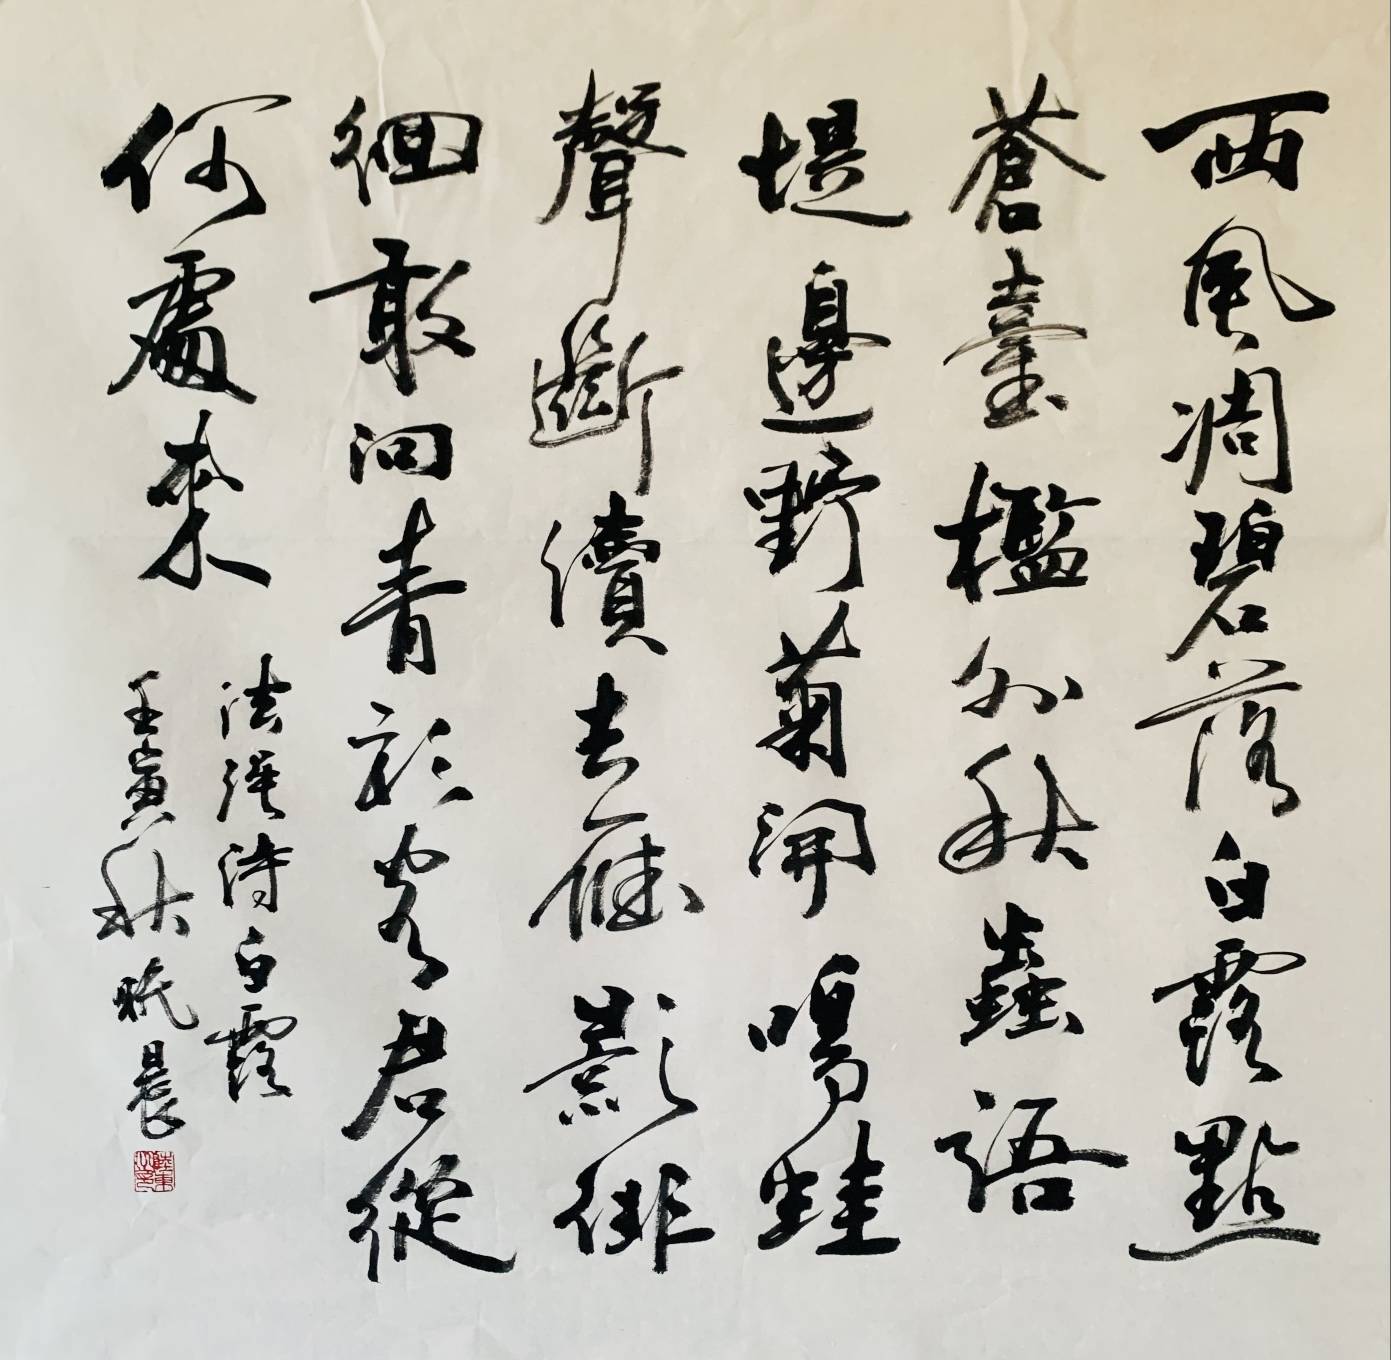 西風凋碧落白露點
蒼臺檻外秋蟲語
堤邊野菊開鳴蛙
聲斷續去雁影徘
徊敢问青彩客君從
何處来
法强诗白露
壬寅秋晓晨